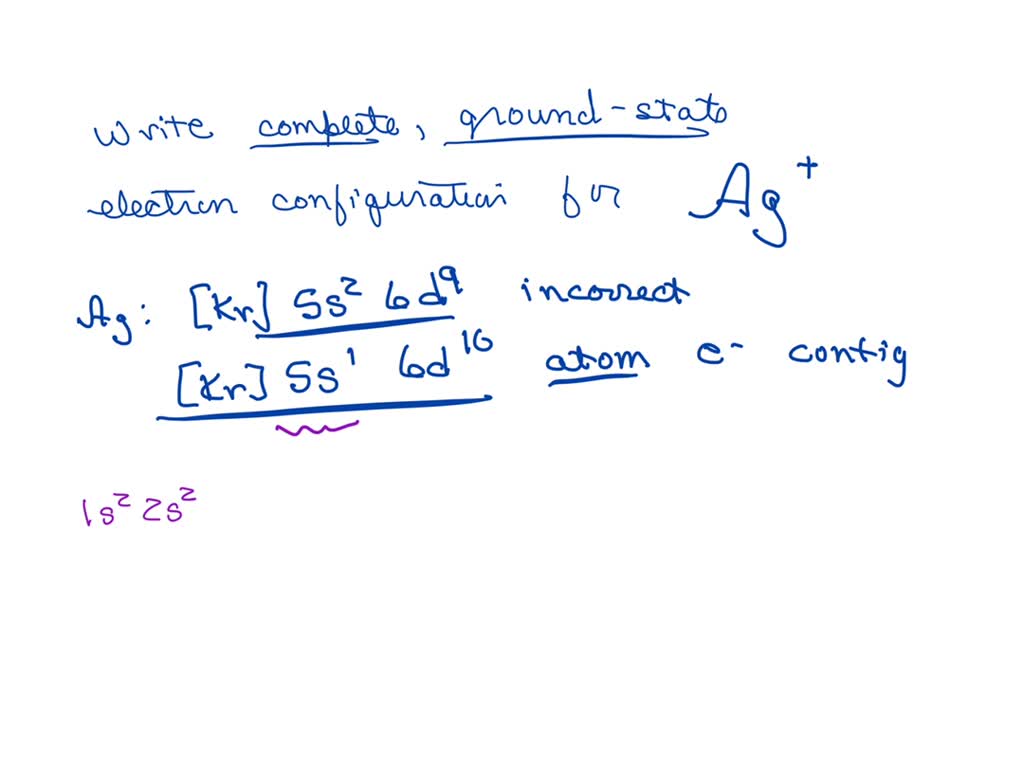 Write complete, ground-state
electron configuration for Ag⁺
Ag: [Kr] 5s² 6d⁹ incorrect
[Kr] 5s¹ 6d¹⁰ atom e⁻ config
1s² 2s²